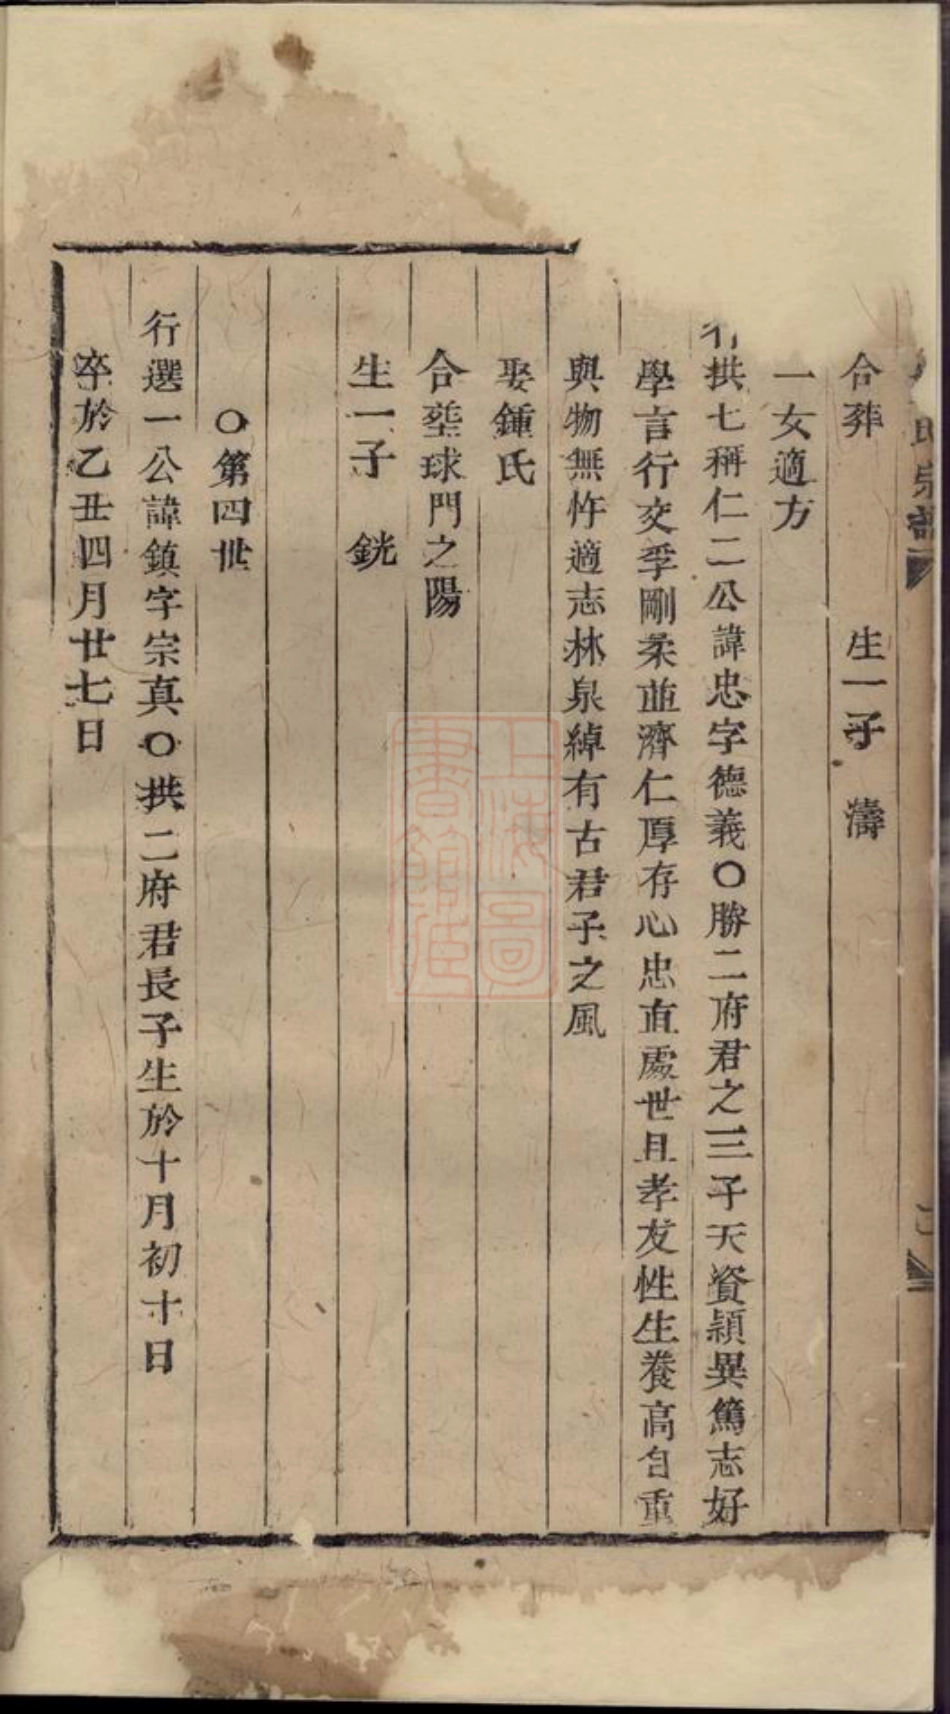 氏宗譜
合葬　生一子　濤
一女適方
行拱七稱仁二公諱忠字德義○勝二府君之三子天資穎異篤志好
學言行交孚剛柔並濟仁厚存心忠直處世且孝友性生養高自重
與物無忤適志林泉綽有古君子之風
娶鍾氏
合塟球門之陽
生一子　銧
○第四世
行選一公諱鎮字宗真○拱二府君長子生於十月初十日
卒於乙丑四月廿七日
上海圖書館藏